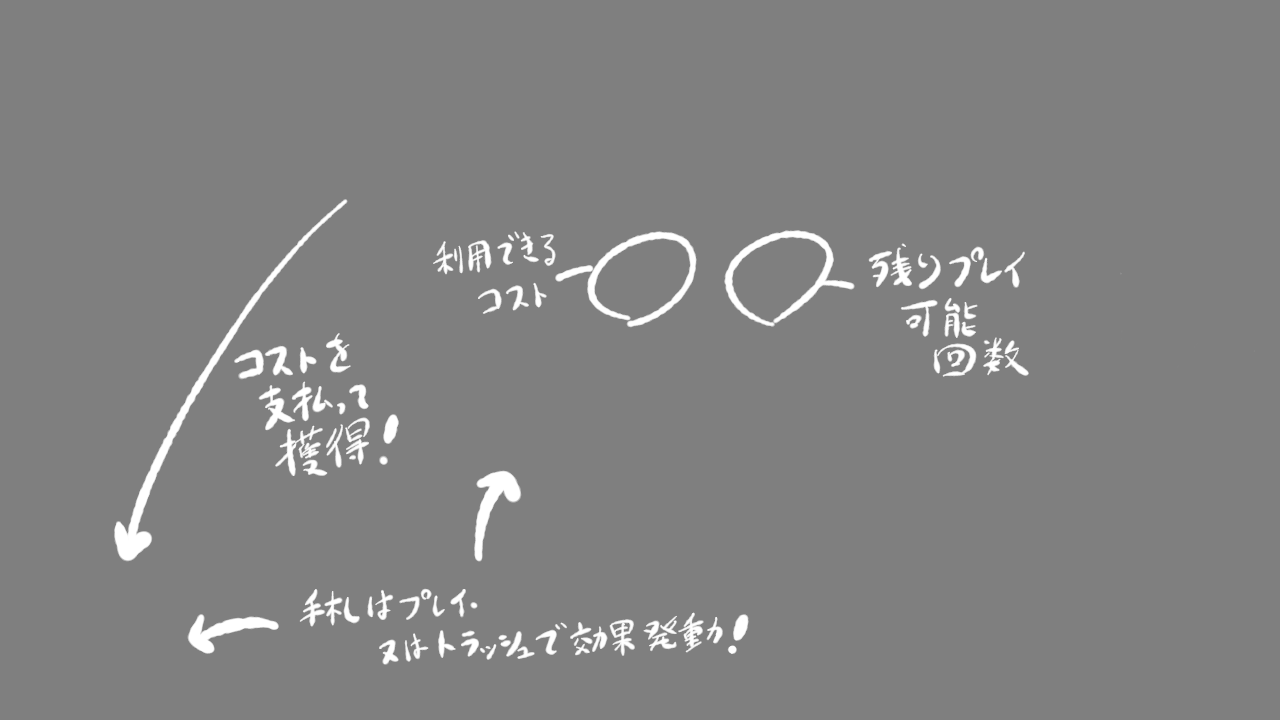 利用できる
コスト
残りプレイ
可能
回数
コストを
支払って
獲得!
手札はプレイ.
又はトラッシュで効果発動!